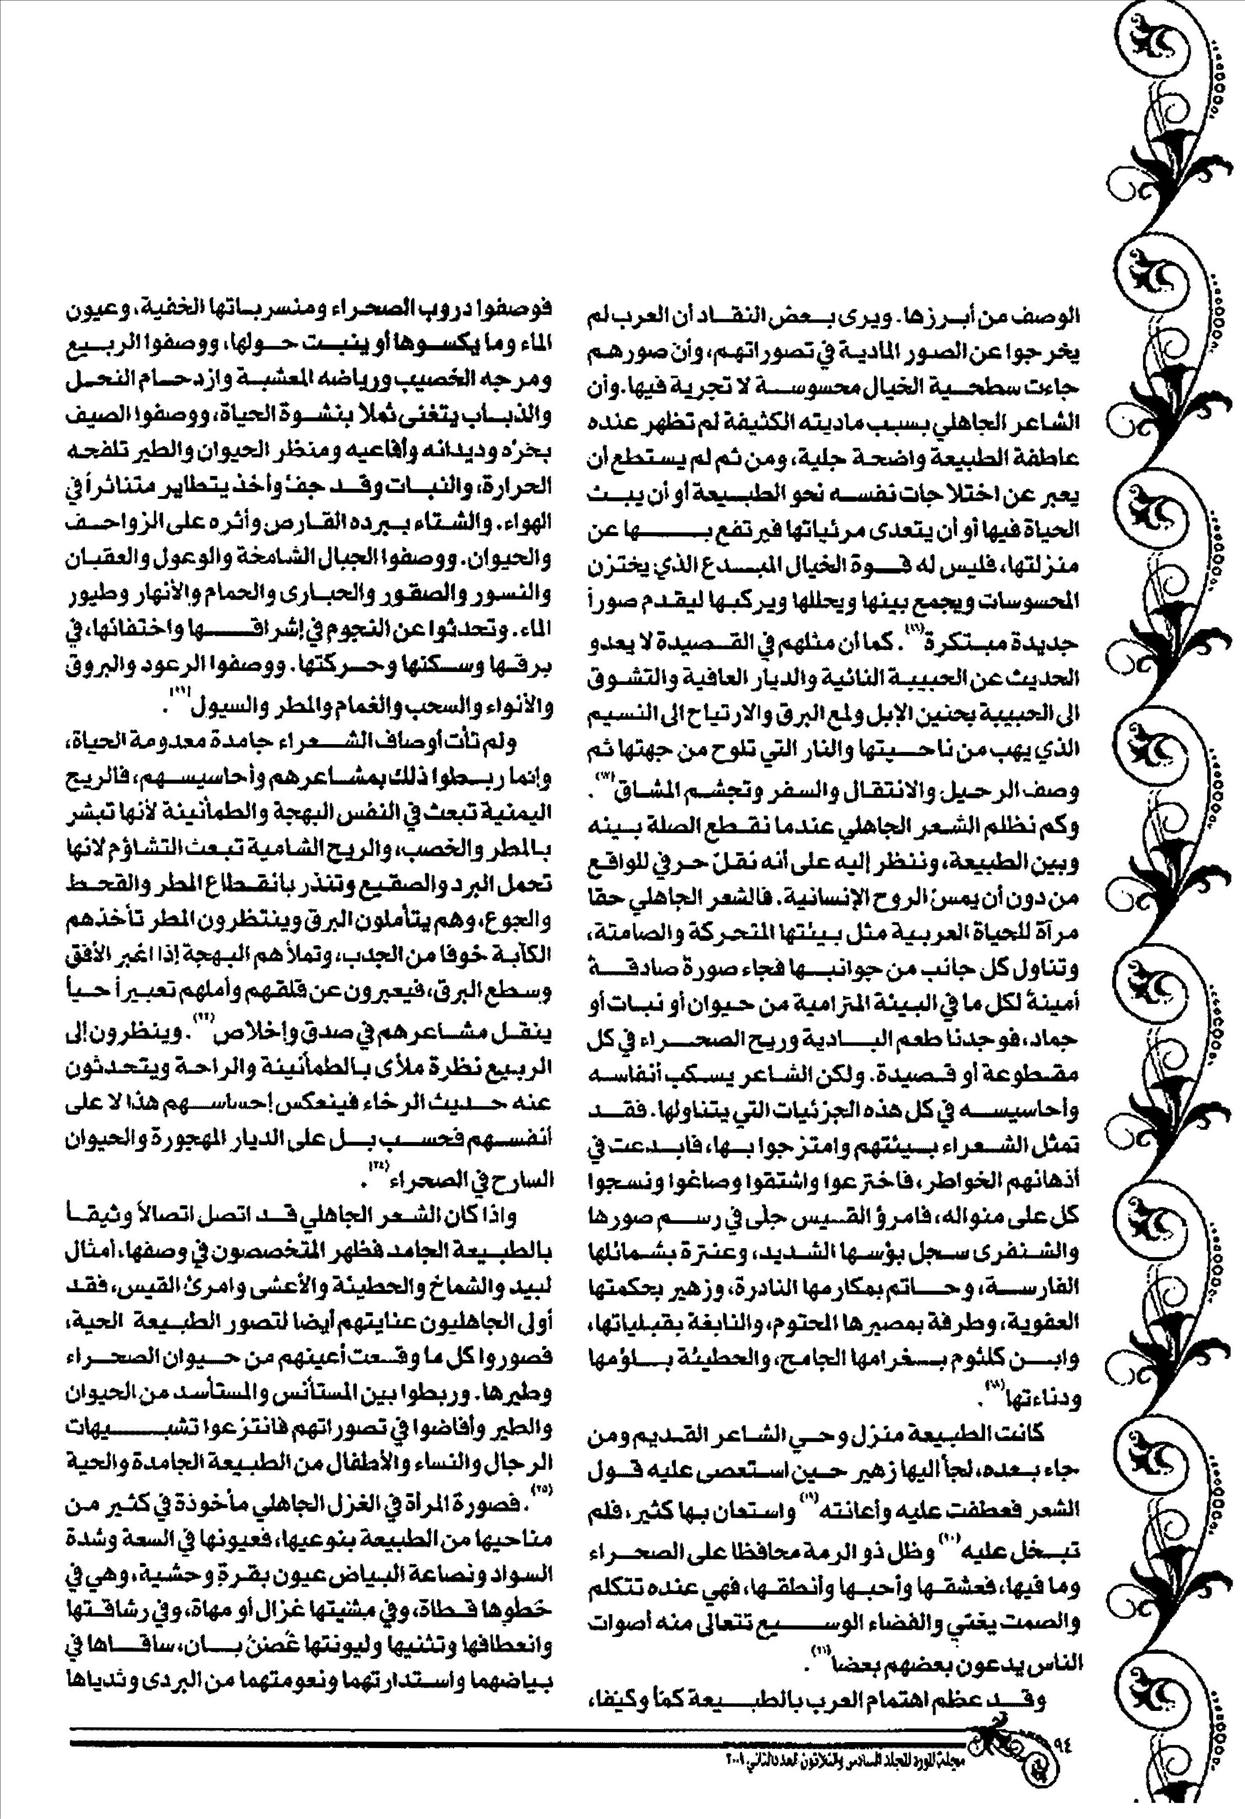 الوصف من أبرزها. ويرى بعض النقاد أن العرب لم
يخرجوا عن الصور المادية في تصوراتهم، وأن صورهم
جاءت سطحية الخيال محسوسة لا تجرية فيها. وأن
الشاعر الجاهلي بسبب ماديته الكثيفة لم تظهر عنده
عاطفة الطبيعة واضحة جلية، ومن ثم لم يستطع أن
يعبر عن اختلاجات نفسه نحو الطبيعة أو أن يبث
الحياة فيها أو أن يتعدى مرئياتها فيرتفع بها عن
منزلتها، فليس له قوة الخيال المبدع الذي يختزن
المحسوسات ويجمع بينها ويحللها ويركبها ليقدم صوراً
جديدة مبتكرة. كما أن مثلهم في القصيدة لا يعدو
الحديث عن الحبيبة النائية والديار العافية والتشوق
الى الحبيبة بحنين الإبل ولمع البرق والارتياح الى النسيم
الذي يهب من ناحيتها والنار التي تلوح من جهتها ثم
وصف الرحيل والانتقال والسفر وتجشم المشاق(١٧).
وكم نظلم الشعر الجاهلي عندما نقطع الصلة بينه
وبين الطبيعة، وننظر إليه على أنه نقلٌ حرفي للواقع
من دون أن يمسَّ الروح الإنسانية. فالشعر الجاهلي حقا
مرآة للحياة العربية مثل بيئتها المتحركة والصامتة،
وتناول كل جانب من جوانبها فجاء صورة صادقةً
أمينةً لكل ما في البيئة المترامية من حيوان أو نبات أو
جماد، فوجدنا طعم البادية وريح الصحراء في كل
مقطوعة أو قصيدة. ولكن الشاعر يسكب أنفاسه
وأحاسيسه في كل هذه الجزئيات التي يتناولها. فقد
تمثل الشعراء بيئتهم وامتزجوا بها، فابدعت في
أذهانهم الخواطر، فاخترعوا واشتقوا وصاغوا ونسجوا
كل على منواله، فامرؤ القيس جلى في رسم صورها
والشنفرى سجل بؤسها الشديد، وعنترة بشمائلها
الفارسة، وحاتم بمكارمها النادرة، وزهير بحكمتها
العفوية، وطرفة بمصيرها المحتوم، والنابغة بقبلياتها،
وابن كلثوم بسغرامها الجامح، والحطيئة بلؤمها
ودناءتها(١٨).
كانت الطبيعة منزل وحي الشاعر القديم ومن
جاء بعده، لجأ اليها زهير حين استعصى عليه قول
الشعر فعطفت عليه وأعانته(١٩) واستعان بها كثير، فلم
تبخل عليه(٢٠) وظل ذو الرمة محافظا على الصحراء
وما فيها، فعشقها وأحبها وأنطقها، فهي عنده تتكلم
والصمت يغني والفضاء الوسيع تتعالى منه أصوات
الناس يدعون بعضهم بعضا(٢١).
وقد عظم اهتمام العرب بالطبيعة كمّا وكيفا،
فوصفوا دروب الصحراء ومنسرباتها الخفية، وعيون
الماء وما يكسوها أو ينبت حولها، ووصفوا الربيع
ومرجه الخصيب ورياضه المعشبة وازدحام النحل
والذباب يتغنى ثملا بنشوة الحياة، ووصفوا الصيف
بحرّه وديدانه وأفاعيه ومنظر الحيوان والطير تلفحه
الحرارة، والنبات وقد جفّ وأخذ يتطاير متناثراً في
الهواء. والشتاء ببرده القارص وأثره على الزواحف
والحيوان. ووصفوا الجبال الشامخة والوعول والعقبان
والنسور والصقور والحبارى والحمام والأنهار وطيور
الماء. وتحدثوا عن النجوم في إشراقها واختفائها، في
برقها وسكنها وحركتها. ووصفوا الرعود والبروق
والأنواء والسحب والغمام والمطر والسيول.
ولم تأت أوصاف الشعراء جامدة معدومة الحياة،
وإنما ربطوا ذلك بمشاعرهم وأحاسيسهم، فالريح
اليمنية تبعث في النفس البهجة والطمأنينة لأنها تبشر
بالمطر والخصب، والريح الشامية تبعث التشاؤم لانها
تحمل البرد والصقيع وتنذر بانقطاع المطر والقحط
والجوع، وهم يتأملون البرق وينتظرون المطر تأخذهم
الكآبة خوفا من الجدب، وتملأهم البهجة إذا اغبر الأفق
وسطع البرق، فيعبرون عن قلقهم وأملهم تعبيراً حياً
ينقل مشاعرهم في صدق وإخلاص(٢٣). وينظرون إلى
الربيع نظرة ملأى بالطمأنينة والراحة ويتحدثون
عنه حديث الرخاء فينعكس إحساسهم هذا لا على
أنفسهم فحسب بل على الديار المهجورة والحيوان
السارح في الصحراء(٢٤).
واذا كان الشعر الجاهلي قد اتصل اتصالاً وثيقا
بالطبيعة الجامد فظهر المتخصصون في وصفها، أمثال
لبيد والشماخ والحطيئة والأعشى وامرئ القيس، فقد
أولى الجاهليون عنايتهم أيضا لتصور الطبيعة الحية،
فصوروا كل ما وقعت أعينهم من حيوان الصحراء
وطيرها. وربطوا بين المستأنس والمستأسد من الحيوان
والطير وأفاضوا في تصوراتهم فانتزعوا تشبيهات
الرجال والنساء والأطفال من الطبيعة الجامدة والحية
(٢٥). فصورة المرأة في الغزل الجاهلي مأخوذة في كثير من
مناحيها من الطبيعة بنوعيها، فعيونها في السعة وشدة
السواد ونصاعة البياض عيون بقرةٍ وحشية، وهي في
خطوها قطاة، وفي مشيتها غزال أو مهاة، وفي رشاقتها
وانعطافها وتثنيها وليونتها غُصنُ بان، ساقاها في
بياضهما واستدارتهما ونعومتهما من البردى وثدياها
٩٤
مجلة المورد المجلد السادس والثلاثون العدد الثاني ٢٠٠٩